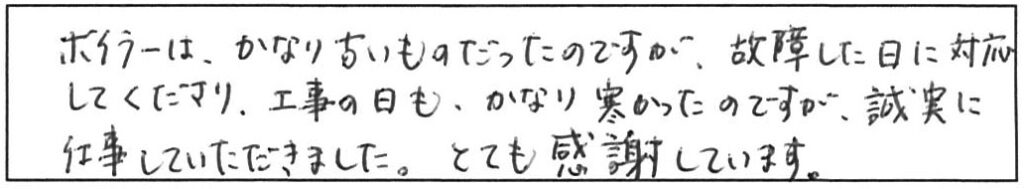 ボイラーは、かなり古いものだったのですが、故障した日に対応
してくださり、工事の日も、かなり寒かったのですが、誠実に
仕事していただきました。とても感謝しています。